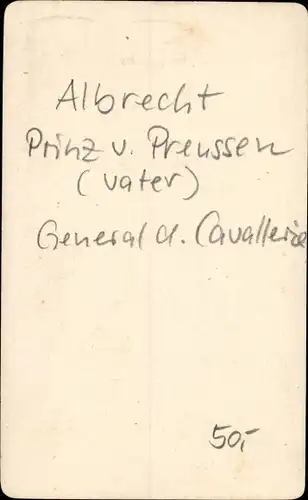 Albrecht
Prinz v. Preussen
(Vater)
General d. Cavallerie
50,-